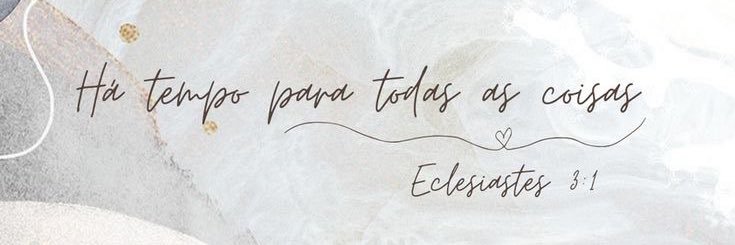 Há tempo para todas as coisas
Eclesiastes 3:1